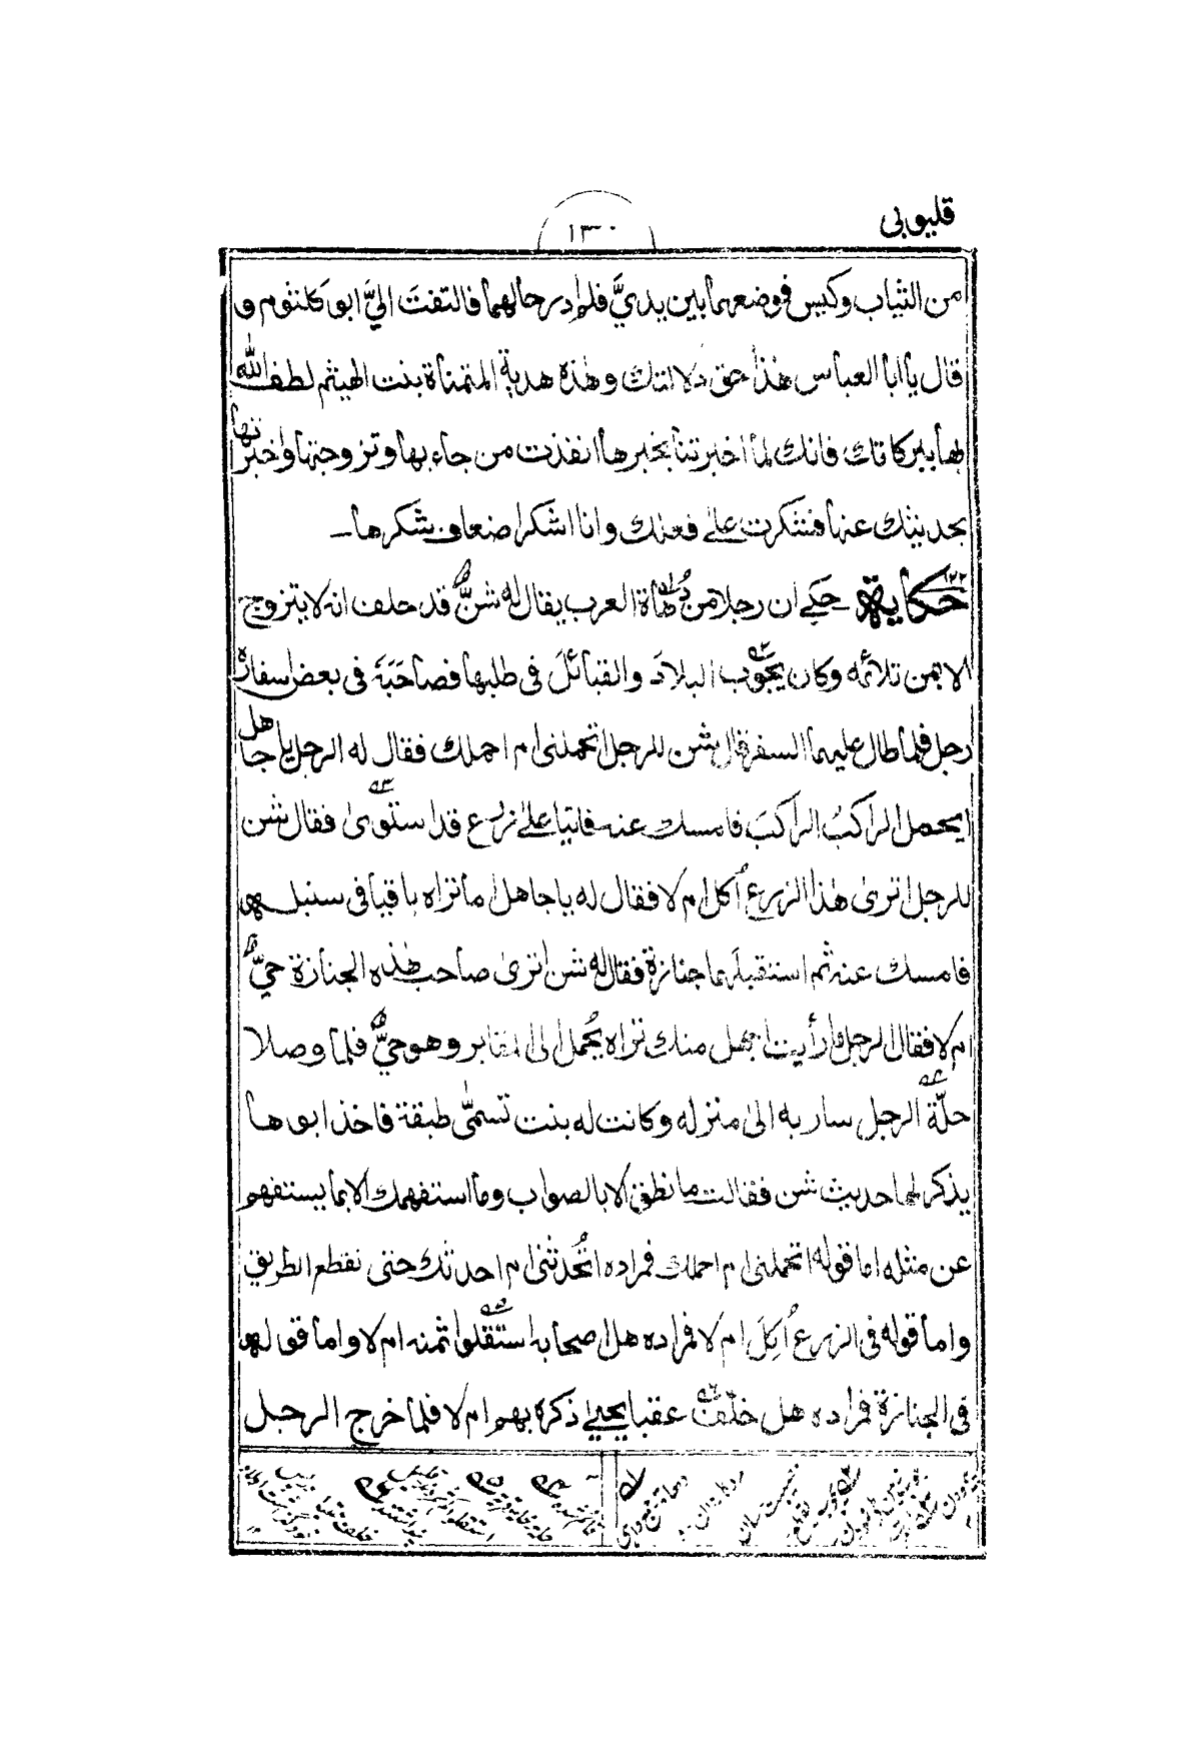 قليوبى
١٣٠
من الثياب وكيس فوضعهما بين يديَّ فلم ادر حالهما فالتفتَ اليَّ ابو كلثوم و
قال يا ابا العباس هٰذا حق دلالتك وهٰذه هدية المتمناة بنت الهيثم لطف الله
بها ببركاتك فانك لما اخبرتنا بخبرها انفذت من جاء بها وتزوجتها واخبرتها
بحديثك عنها فشكرت علىٰ فعلك وانا اشكر اضعاف شكرها ــ
حكاية ١٢٢ حكى ان رجلا من دُهاة العرب يقال له شنٌّ قد حلف انه لا يتزوج
الا بمن تلائمه وكان يجوب البلادَ والقبائلَ فى طلبها فصاحَبَهٗ فى بعض اسفاره
رجل فلما طال عليهما السفر قال شن للرجل اتحملنى ام احملك فقال له الرجل يا جاهل
ايحمل الراكبُ الراكبَ فامسك عنه فاتيا علىٰ زرع قد استوىٰ فقال شن
للرجل اترىٰ هٰذا الزرع اُكل ام لا فقال له يا جاهل اما تراه باقيا فى سنبله
فامسك عنه ثم استقبلهما جنازة فقال له شن اترىٰ صاحب هٰذه الجنازة حيٌّ
ام لا فقال الرجل ما رأيت اجهل منك تراه يُحمل الى المقابر وهو حيٌّ فلما وصلا
حلّة الرجل سار به الىٰ منزله وكانت له بنت تسمّٰى طبقة فاخذ ابوها
يذكر لها حديث شن فقالت ما نطق الا بالصواب وما استفهمك الا بما يستفهم
عن مثله اما قوله اتحملنى ام احملك فمراده اتُحدثنى ام احدثك حتى نقطع الطريق
واما قوله فى الزرع اُكِلَ ام لا فمراده هل اصحابه استقلوا ثمنه ام لا واما قوله
فى الجنازة فمراده هل خلّف عقبا يحيىٰ ذكره بهم ام لا فلما خرج الرجل